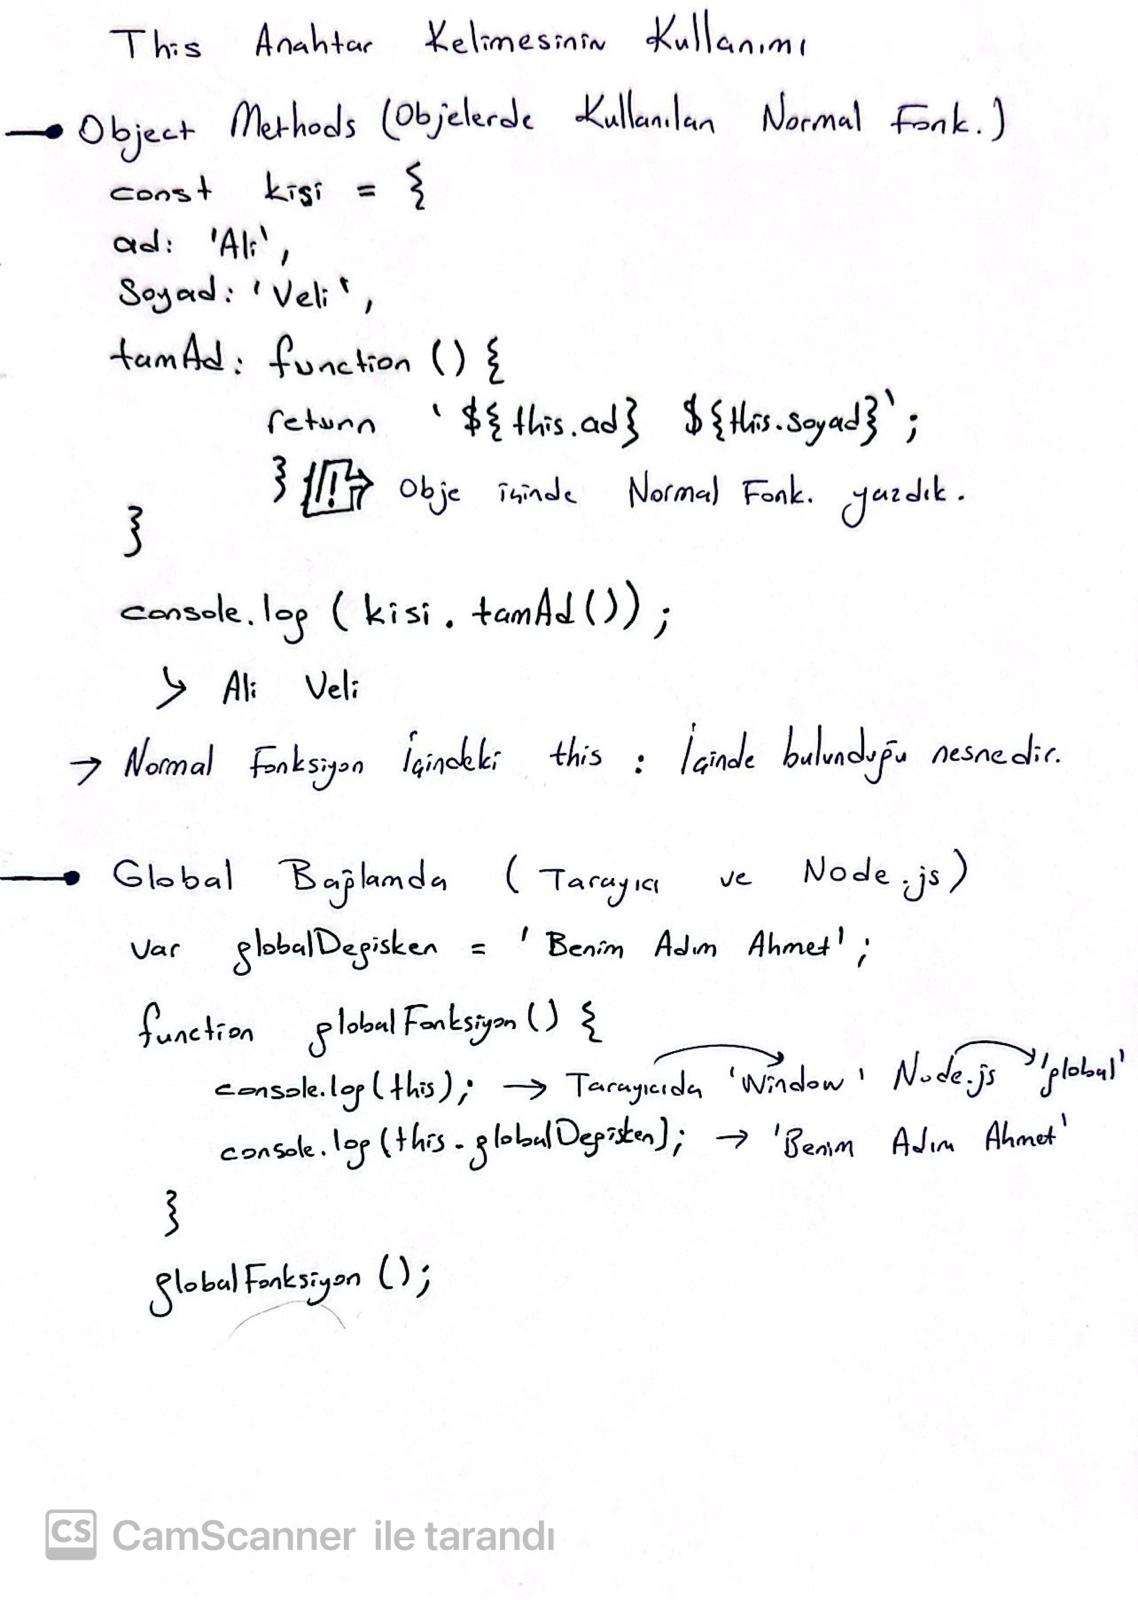 This Anahtar Kelimesinin Kullanımı
Object Methods (Objelerde Kullanılan Normal Fonk.)
const kişi = {
ad: 'Ali',
Soyad: 'Veli',
tamAd: function () {
return `${this.ad} ${this.soyad}`;
} !! Obje içinde Normal Fonk. yazdık.
}
console.log (kisi.tamAd());
↳ Ali Veli
→ Normal Fonksiyon İçindeki this : İçinde bulunduğu nesnedir.
Global Bağlamda (Tarayıcı ve Node.js)
var globalDegisken = 'Benim Adım Ahmet';
function globalFonksiyon () {
console.log(this); → Tarayıcıda 'Window' Node.js 'global'
console.log(this.globalDegisken); → 'Benim Adım Ahmet'
}
globalFonksiyon ();
CS CamScanner ile tarandı